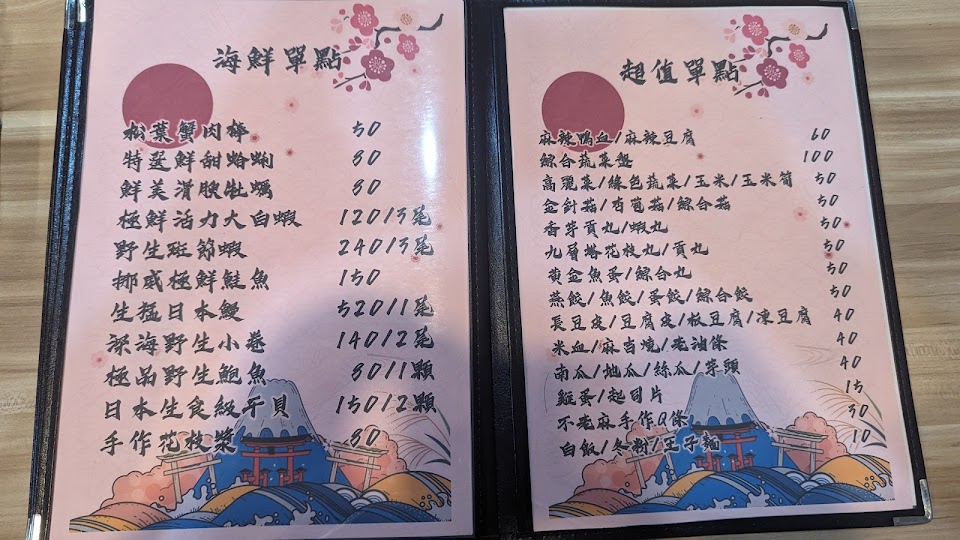 海鮮單點
松葉蟹肉棒 50
特選鮮甜蛤蜊 80
鮮美滑腴牡蠣 80
極鮮活力大白蝦 120/3尾
野生斑節蝦 240/3尾
挪威極鮮鮭魚 150
生猛日本鰻 520/1尾
深海野生小卷 140/2尾
極品野生鮑魚 80/1顆
日本生食級干貝 150/2顆
手作花枝漿 80
超值單點
麻辣鴨血/麻辣豆腐 60
綜合蔬菜盤 100
高麗菜/綠色蔬菜/玉米/玉米筍 50
金針菇/杏苞菇/綜合菇 50
香芋貢丸/蝦丸 50
九層塔花枝丸/貢丸 50
黃金魚蛋/綜合丸 50
燕餃/魚餃/蛋餃/綜合餃 50
長豆皮/豆腐皮/板豆腐/凍豆腐 40
米血/麻吉燒/老油條 40
南瓜/地瓜/絲瓜/芋頭 40
雞蛋/起司片 15
不老麻手作Q條 30
白飯/冬粉/王子麵 10